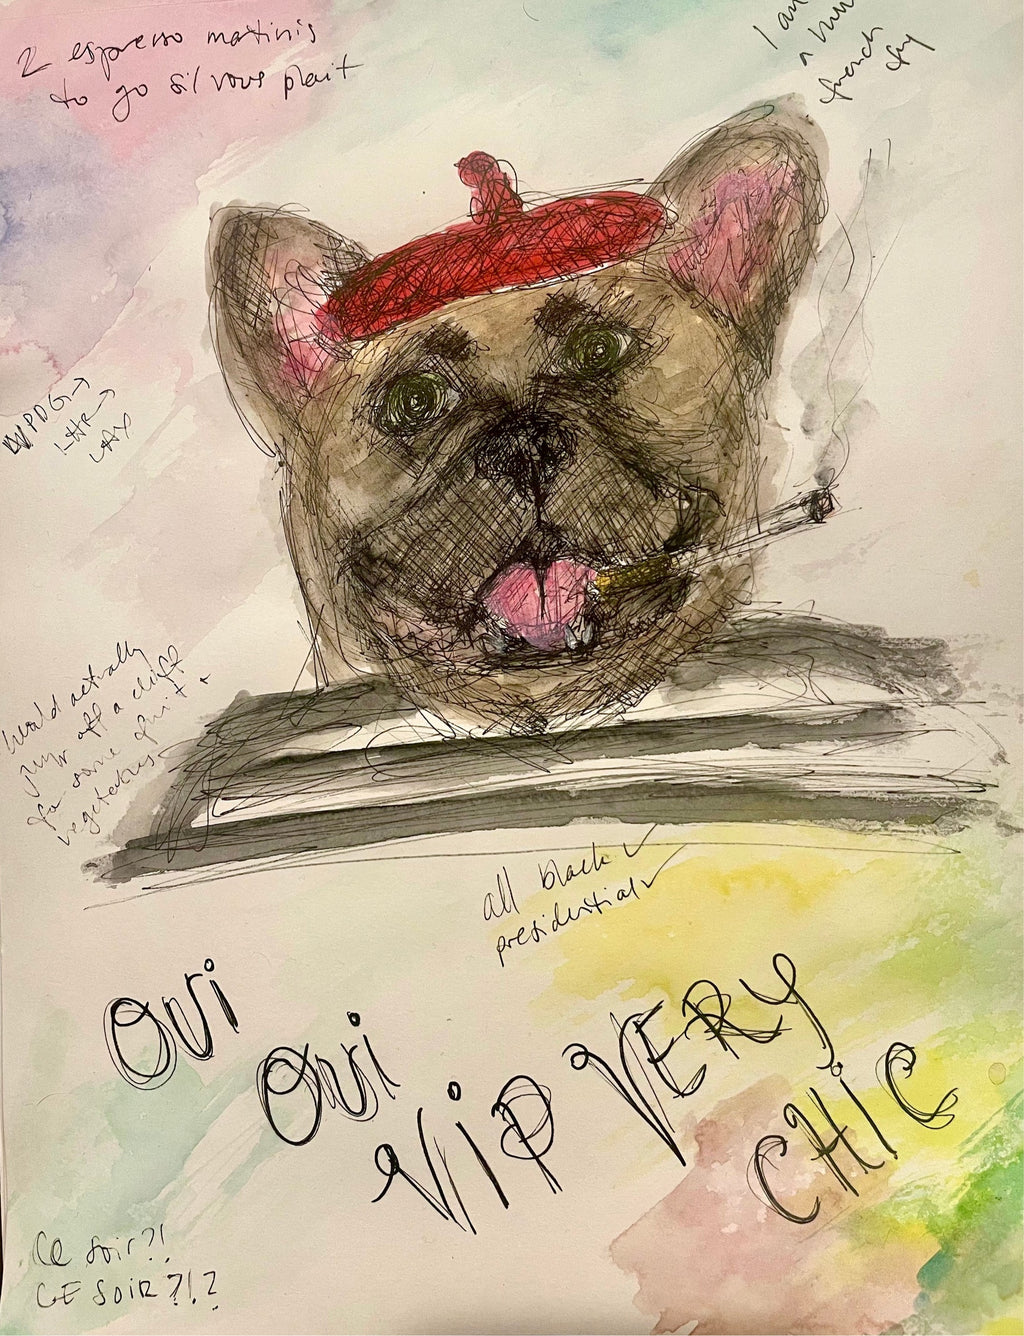 2 espresso martinis
to go sil vous plait
I am
a
french
LHR →
LAX
would actually
jump off a cliff
for some fruit.
vegetables
all black ✓
presidential ✓
OUI
OUI
VIP VERY
CHIC
Ce soir?!
CE SOIR?!?